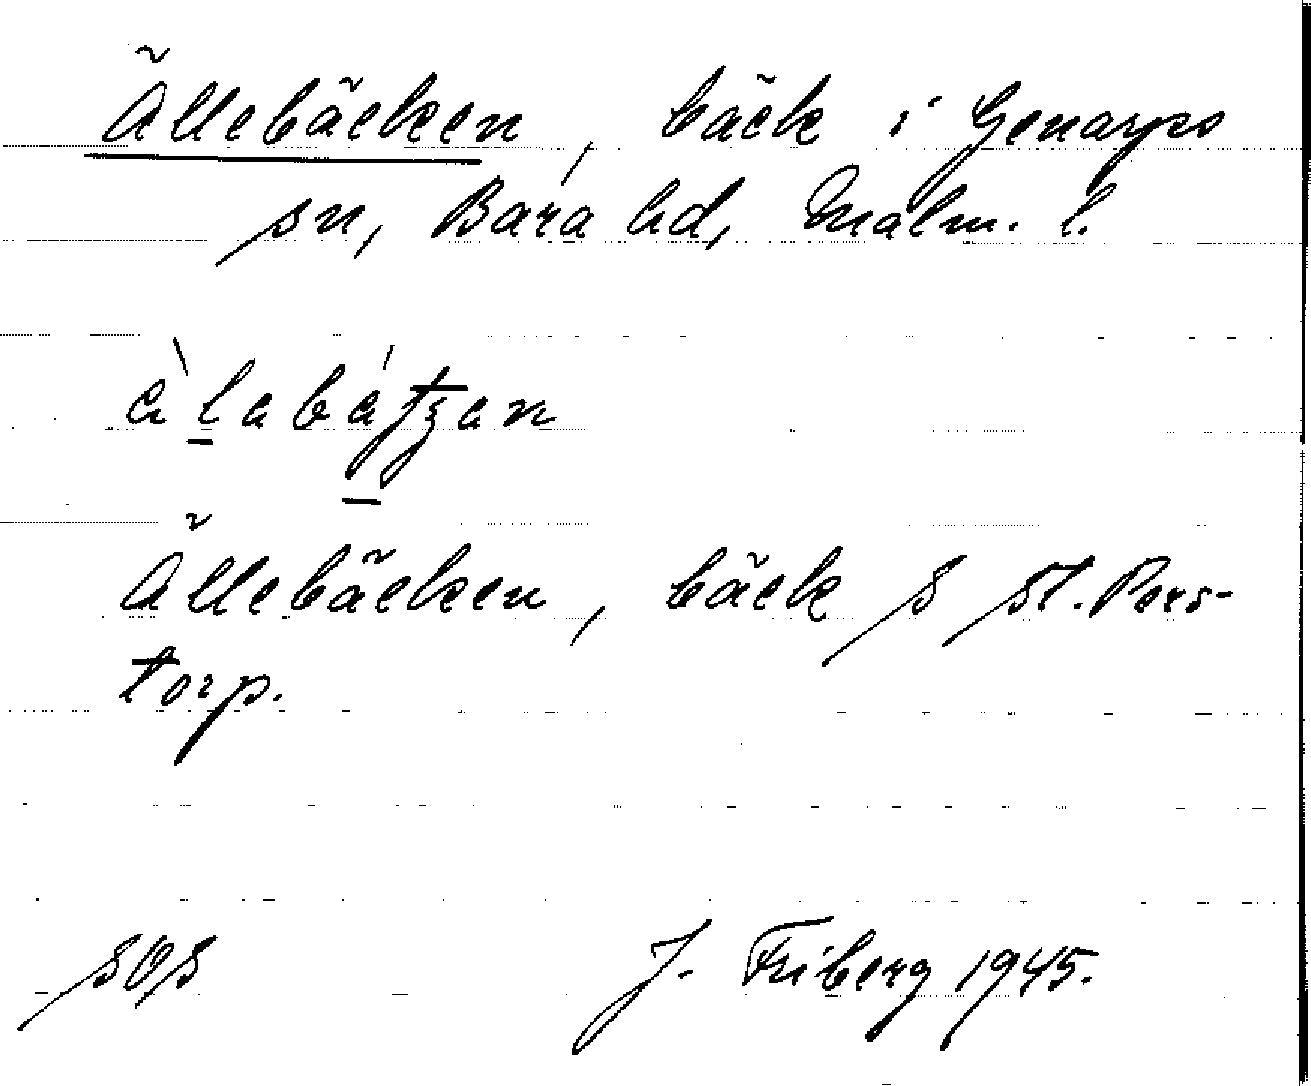 Ällebäcken, bäck i Genarps
sn, Bara hd, Malm. l.
Ällebäcken, bäck S St. Pers-
torp.
SOS J. Friberg 1945.